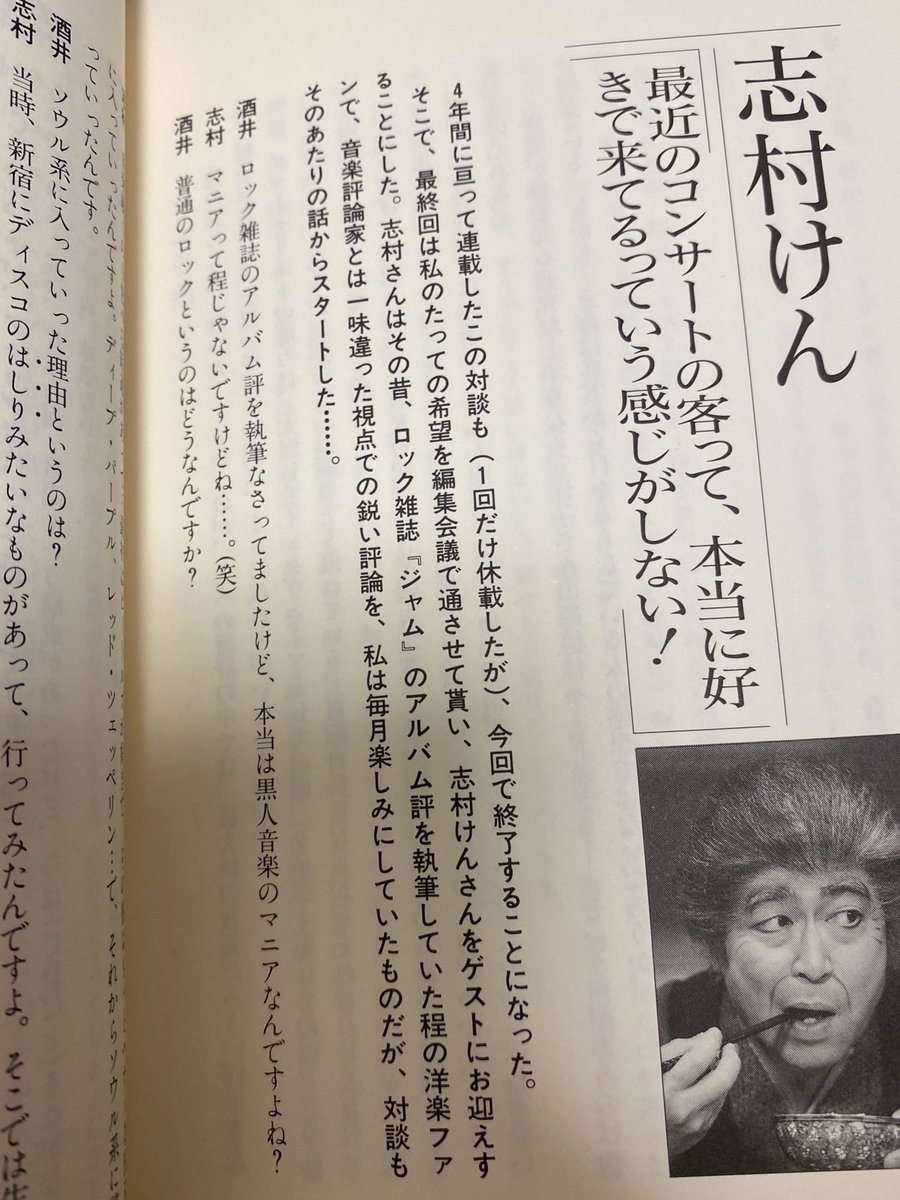 志村けん
最近のコンサートの客って、本当に好
きで来てるっていう感じがしない!
4年間に亘って連載したこの対談も(1回だけ休載したが)、今回で終了することになった。
そこで、最終回は私のたっての希望を編集会議で通させて貰い、志村けんさんをゲストにお迎えす
ることにした。志村さんはその昔、ロック雑誌『ジャム』のアルバム評を執筆していた程の洋楽ファ
ンで、音楽評論家とは一味違った視点での鋭い評論を、私は毎月楽しみにしていたものだが、対談も
そのあたりの話からスタートした……。
酒井 ロック雑誌のアルバム評を執筆なさってましたけど、本当は黒人音楽のマニアなんですよね?
志村 マニアって程じゃないですけどね……。(笑)
酒井 普通のロックというのはどうなんですか?
に入っていったんですよ。ディープ・パープル、レッド・ツェッペリン…で、それからソウル系に
っていったんです。
酒井 ソウル系に入っていった理由というのは?
志村 当時、新宿にディスコのはしりみたいなものがあって、行ってみたんですよ。そこでは